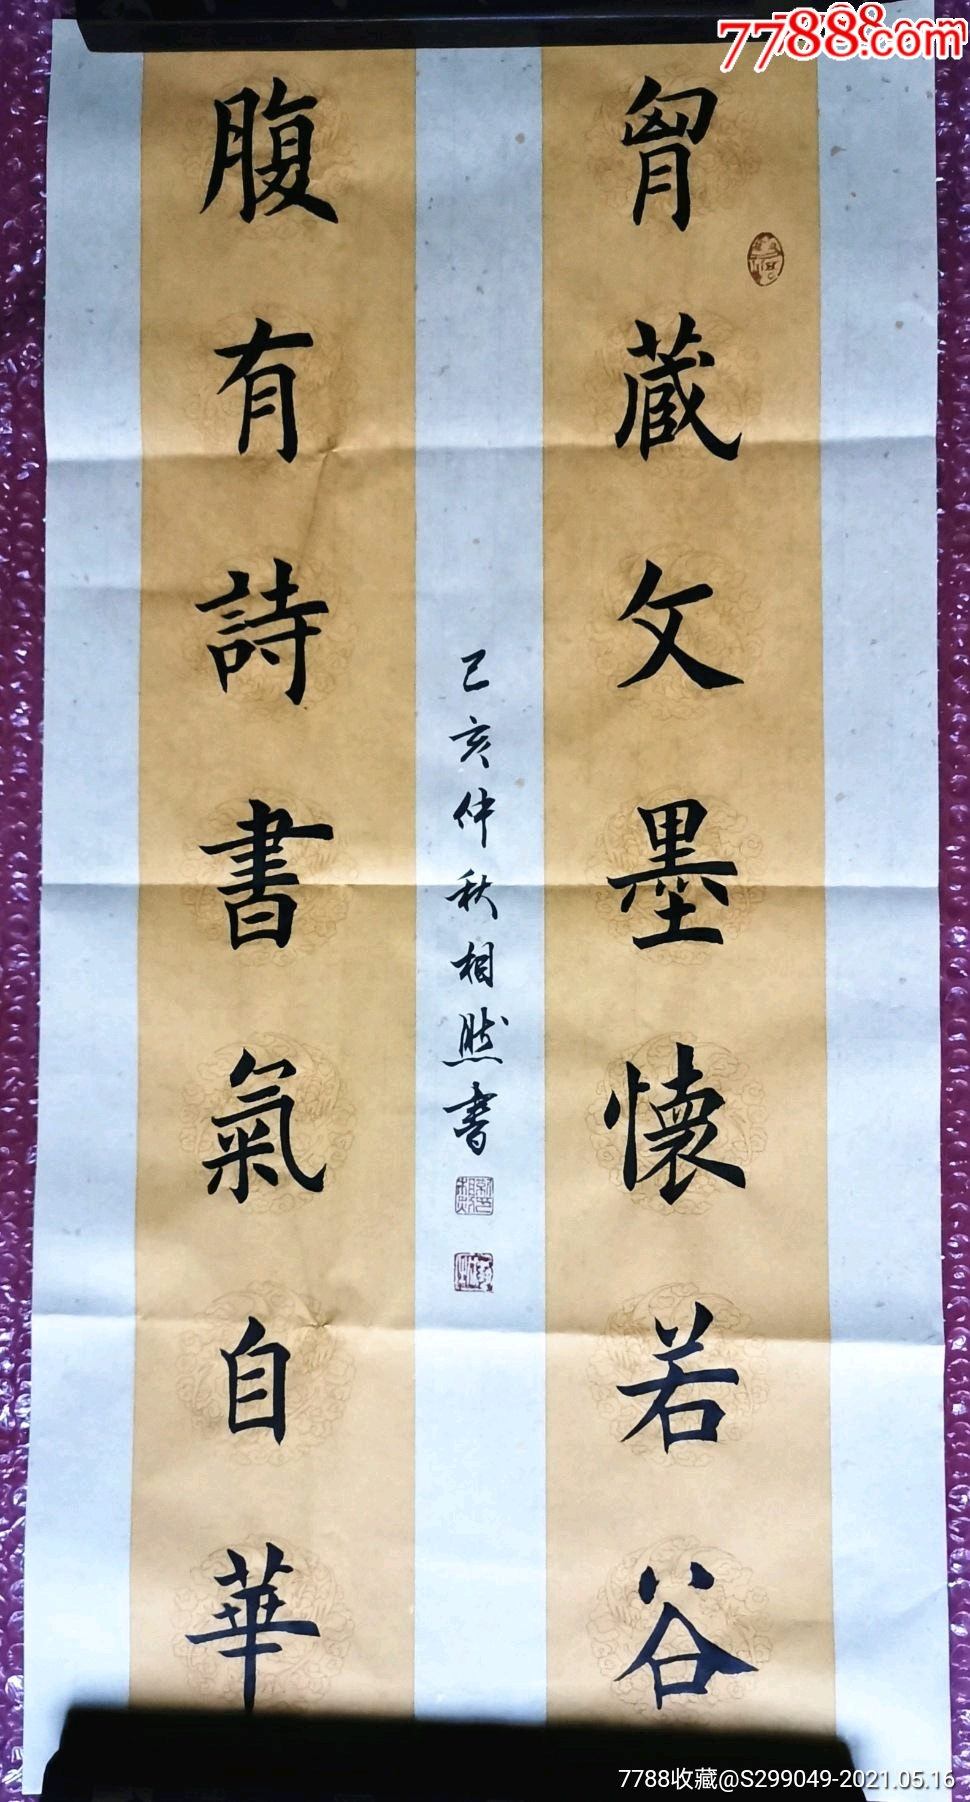 胷藏文墨懷若谷
腹有詩書氣自華
己亥仲秋相然書
7788.com
7788收藏@S299049-2021.05.16